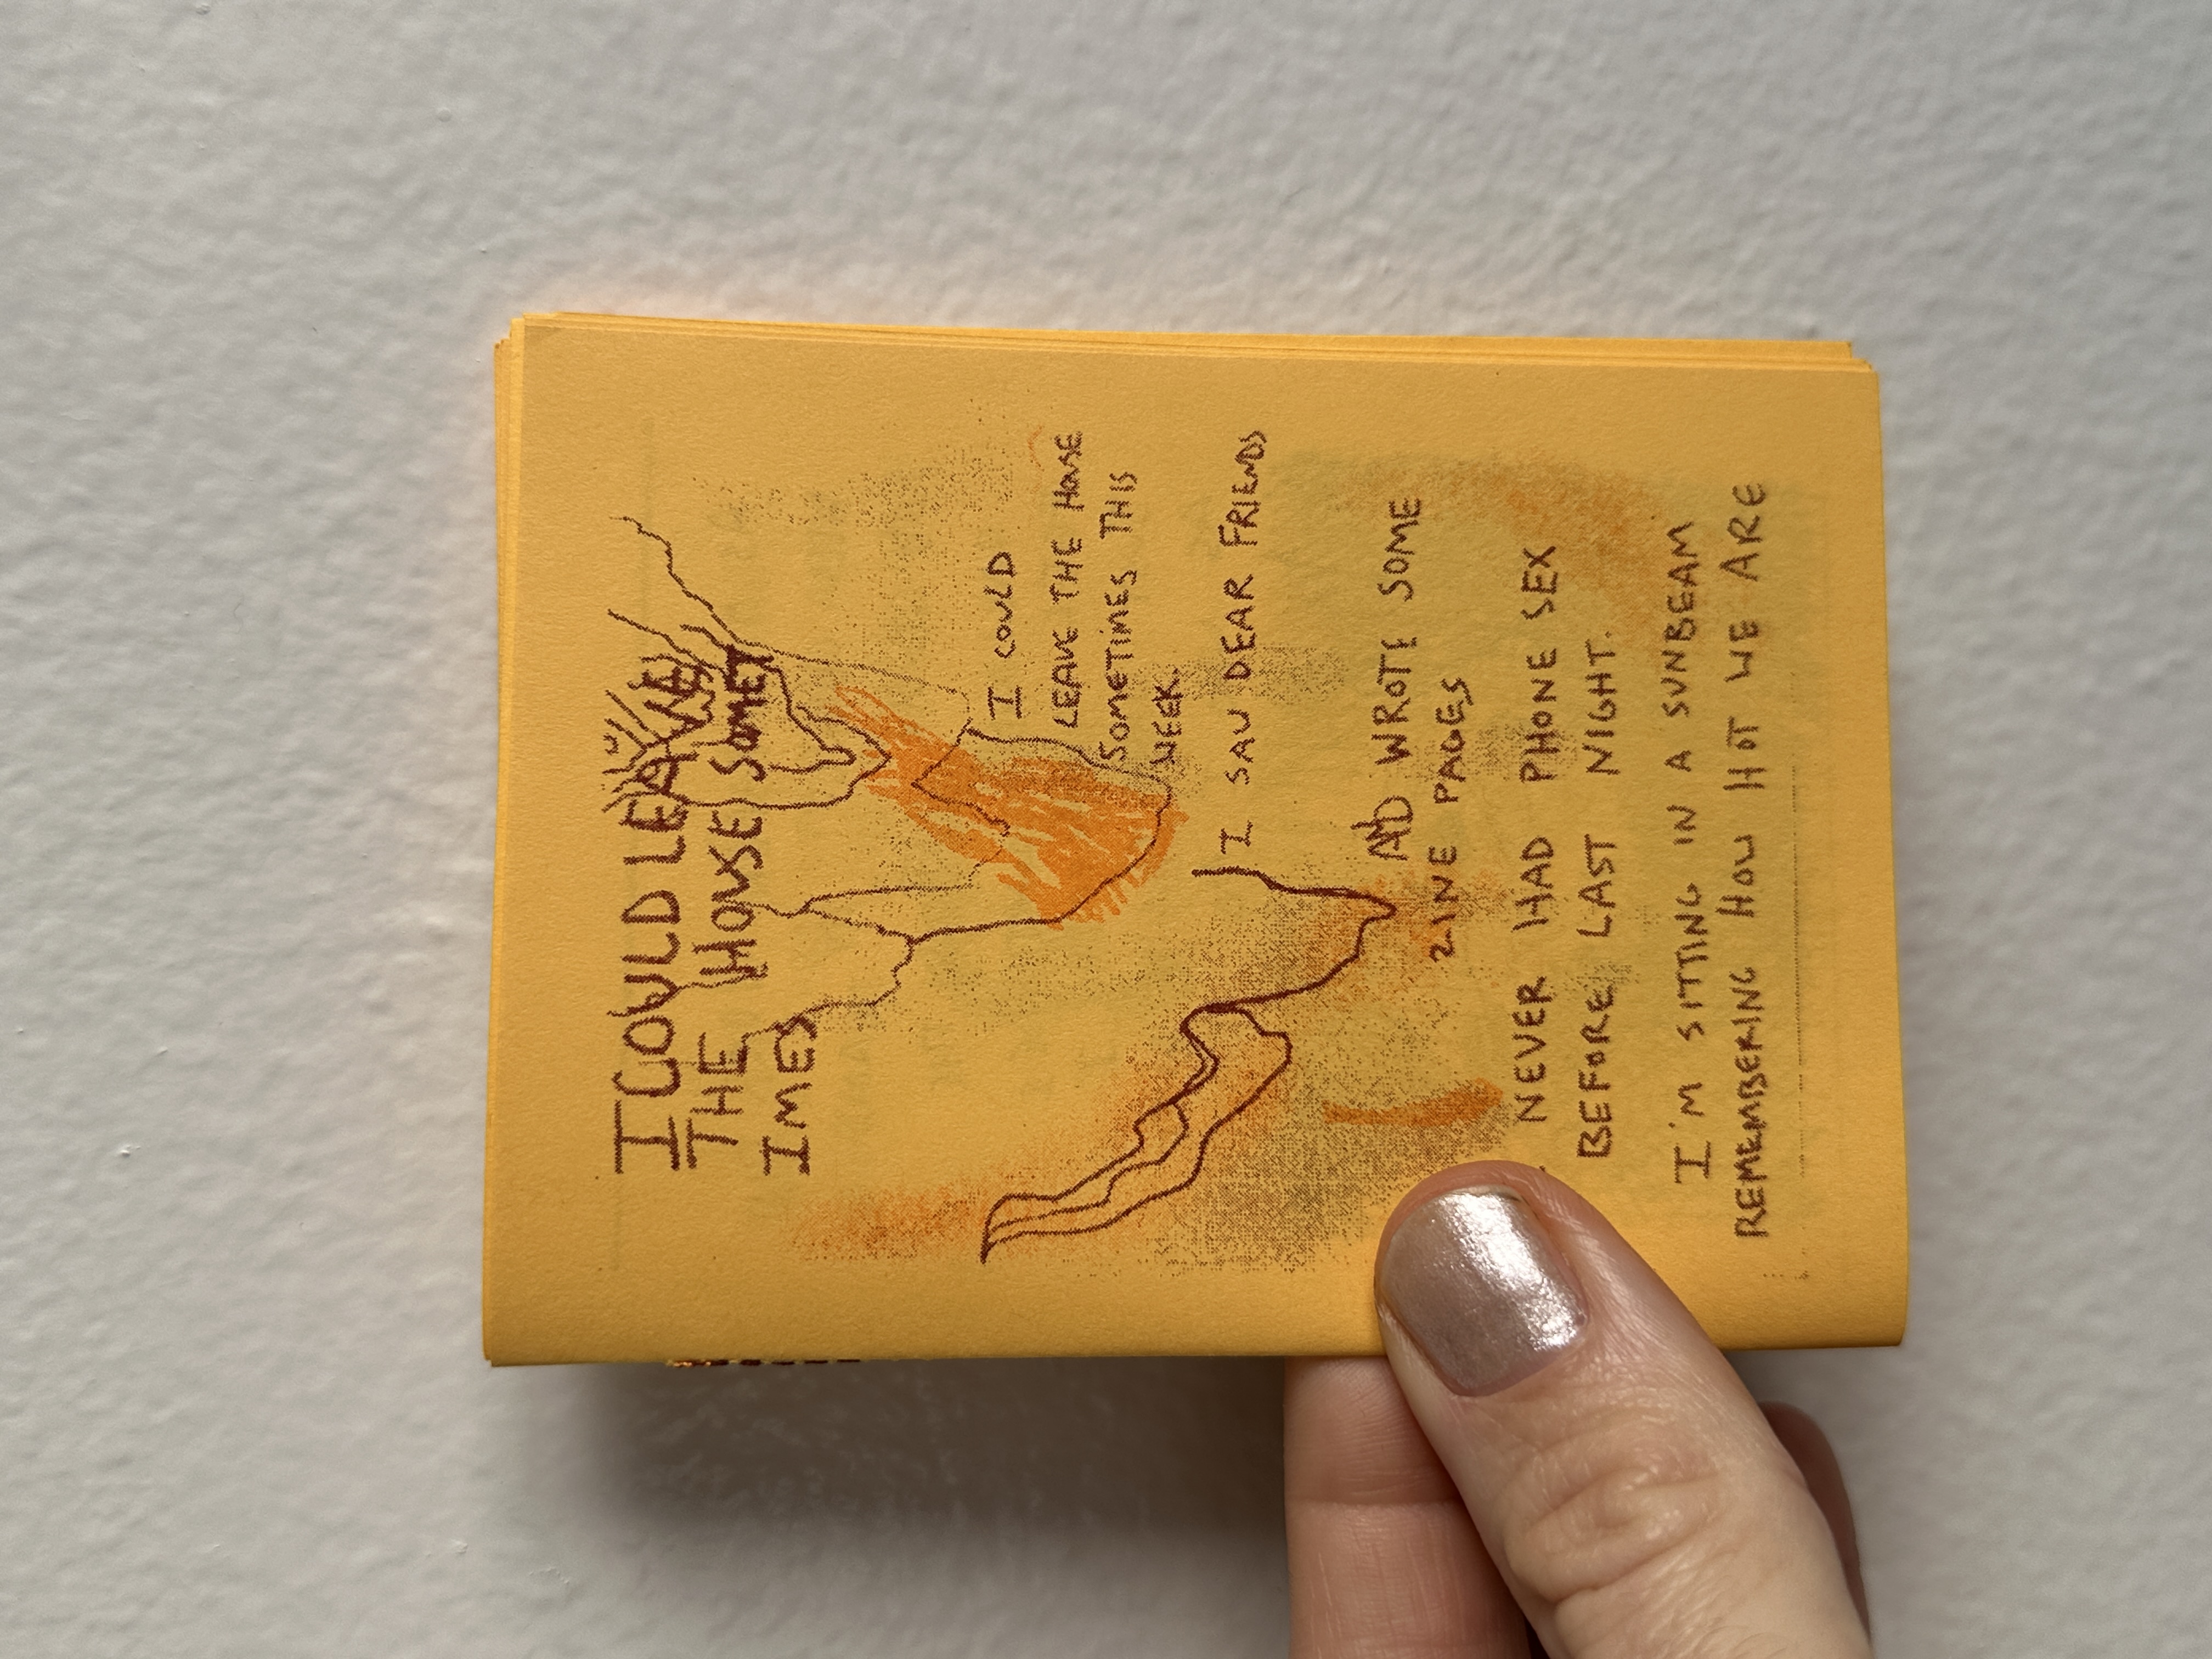 I COULD LEAVE
THE HOUSE SOMET
IMES
I COULD
LEAVE THE HOUSE
SOMETIMES THIS
WEEK.
I SAW DEAR FRIENDS
AND WROTE SOME
ZINE PAGES
NEVER HAD PHONE SEX
BEFORE LAST NIGHT.
I'M SITTING IN A SUNBEAM
REMEMBERING HOW HOT WE ARE